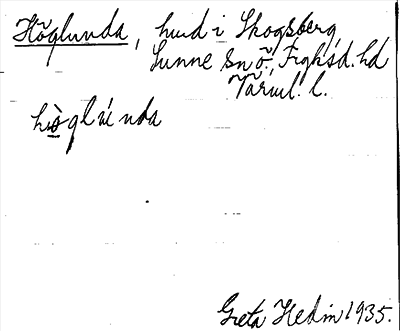 Höglunda, hmd i Skogsberg,
Sunne sn ö., Fryksd. hd
Värml. l.
höglúnda
Greta Hedin 1935.